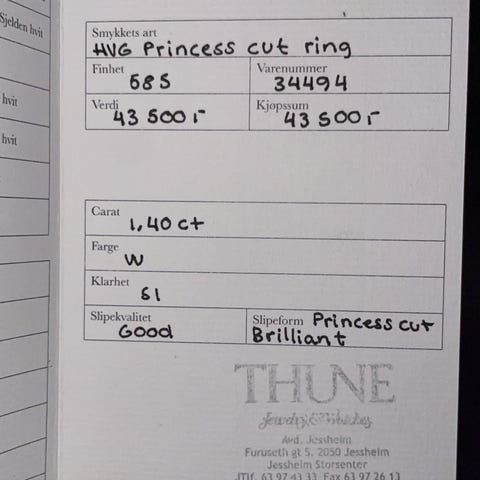 Sjelden hvit
hvit
hvit
Smykkets art
HVG Princess cut ring
Finhet
585
Varenummer
34494
Verdi
43 500 r
Kjøpssum
43 500 r
Carat
1,40 ct
Farge
W
Klarhet
SI
Slipekvalitet
Good
Slipeform Princess cut
Brilliant
THUNE
Avd. Jessheim
Furuseth gt 5, 2050 Jessheim
Jessheim Storsenter
Tlf. 63 97 43 33 Fax 63 97 26 13